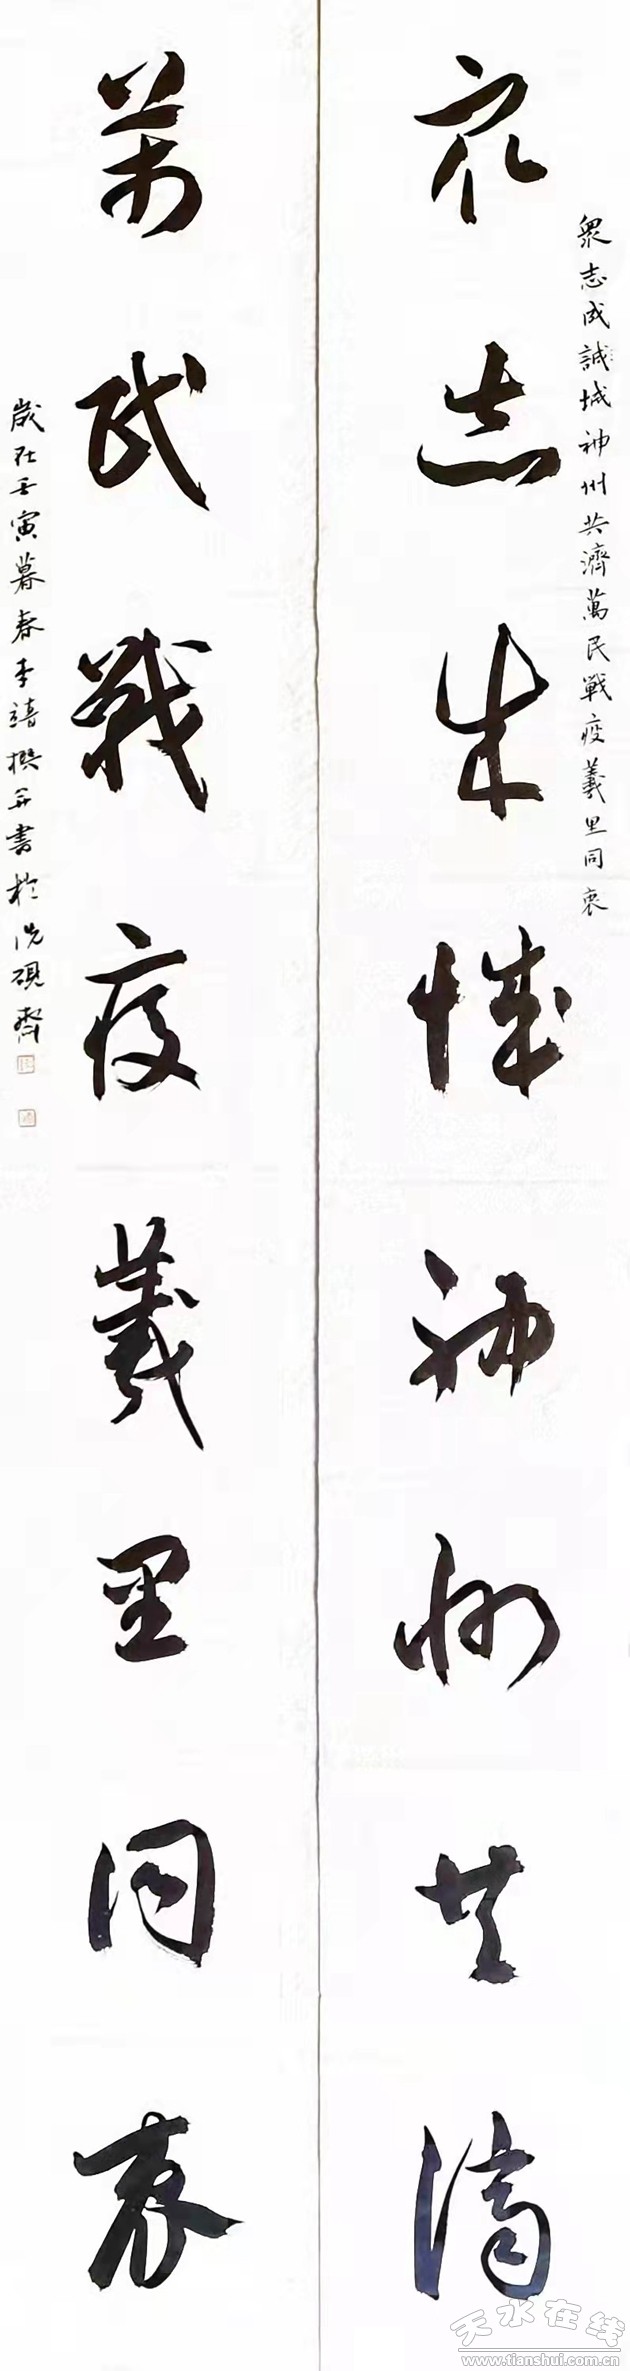 眾志成誠城神州共濟萬民戰疫羲里同衷
眾志成城神州共濟
萬民戰疫羲里同衷
歲在壬寅暮春李撰并書於洗硯齋
天水在线
www.tianshui.com.cn